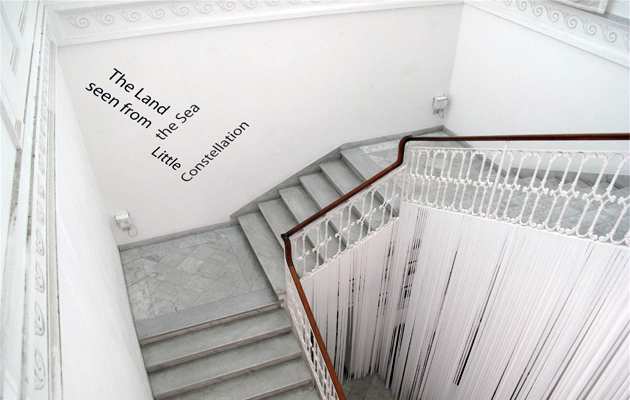 The Land
seen from
the Sea
Little
Constellation